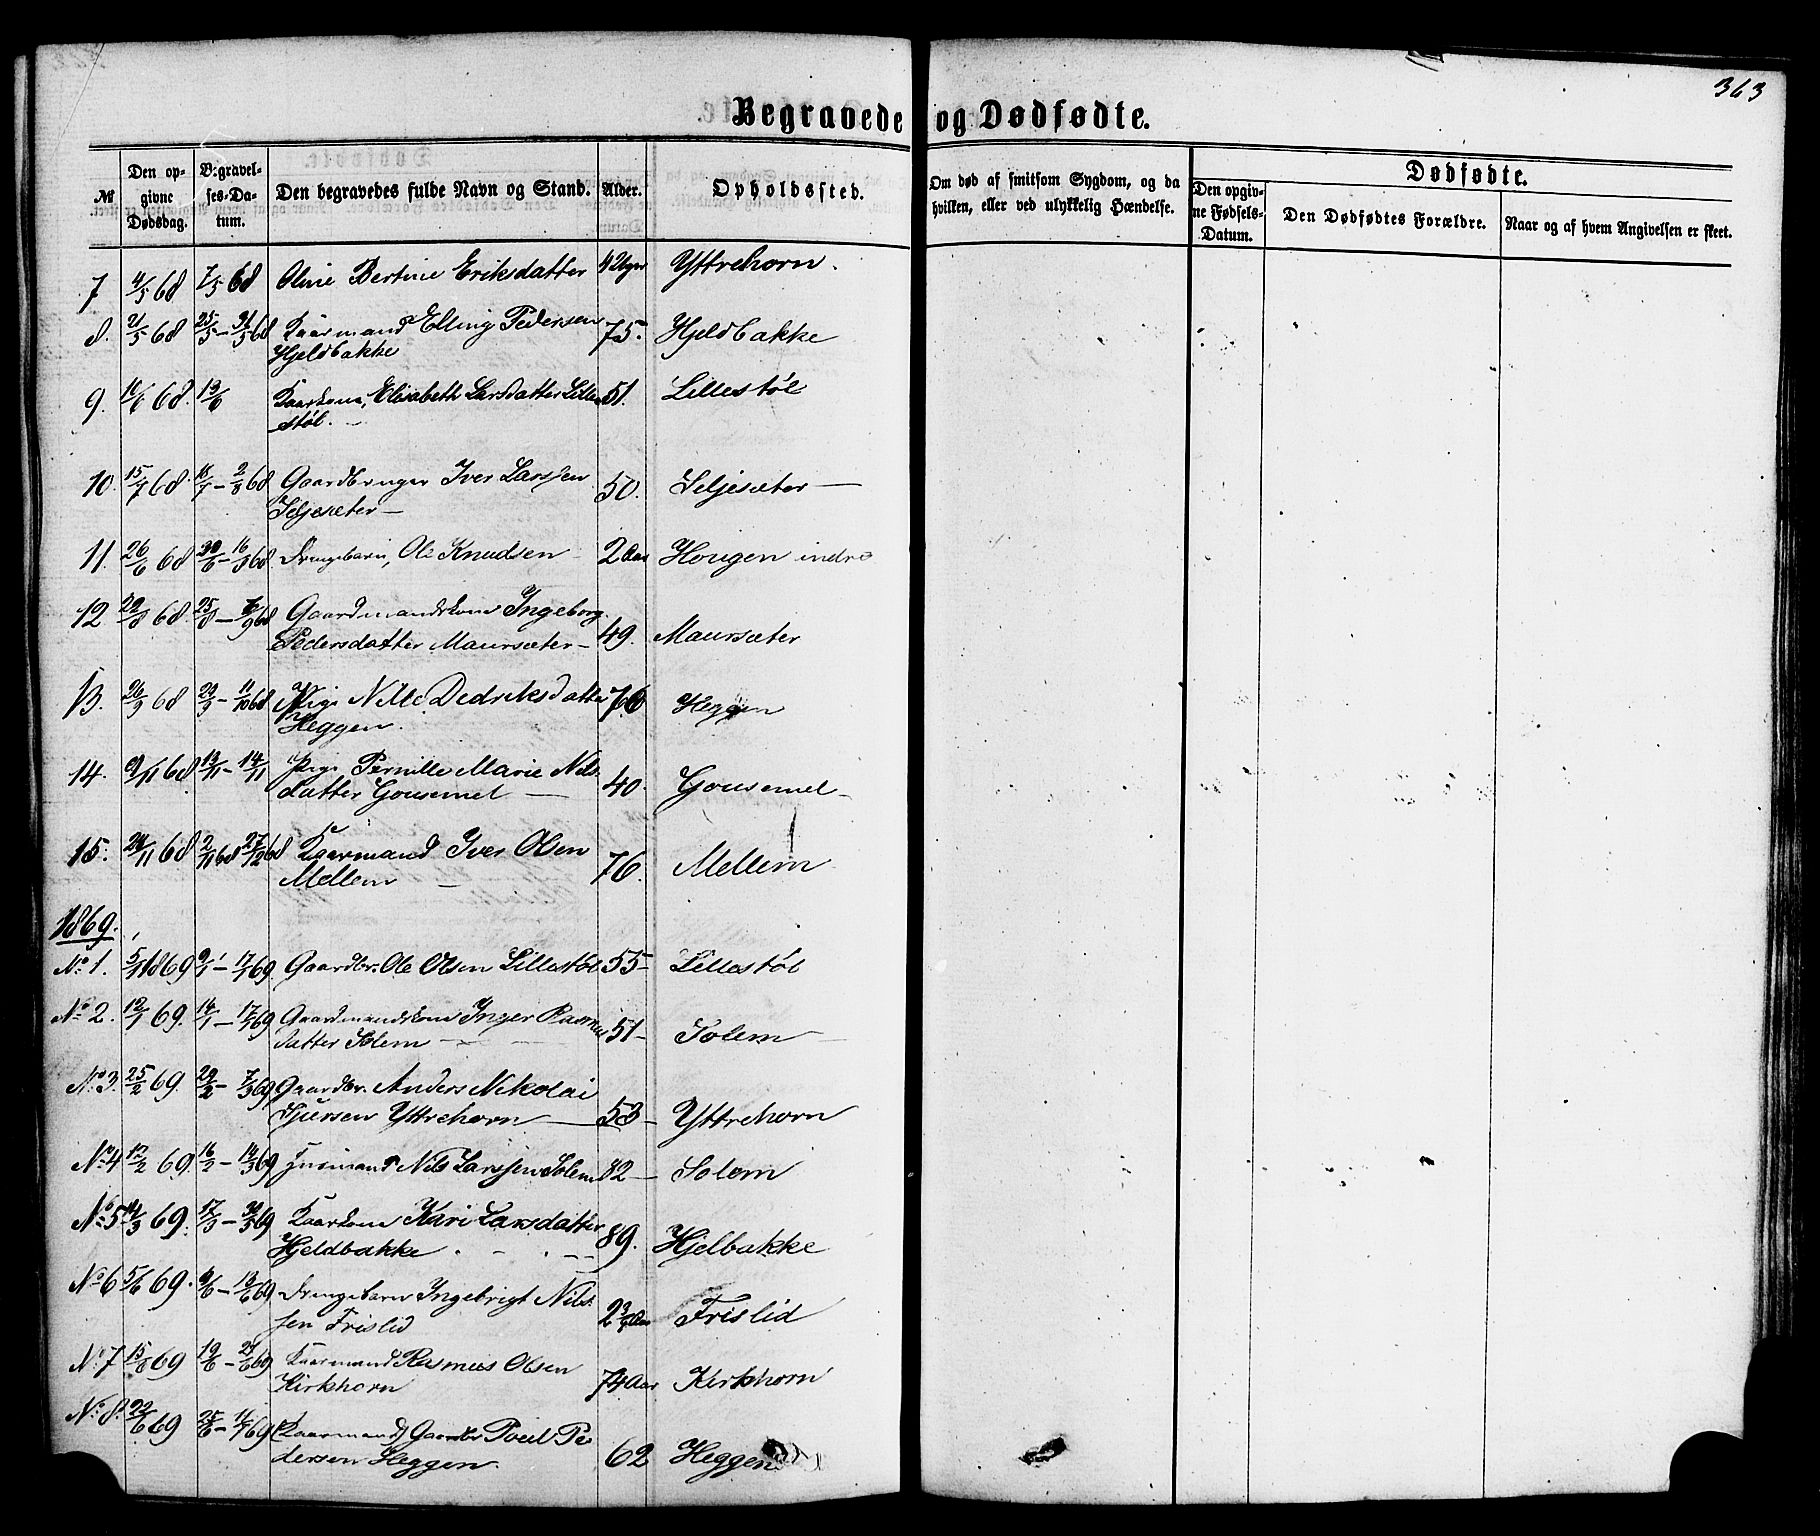 363
Begravede og Dødfødte.
№ Den opgivne Dødsdag. Begravelses-Datum. Den begravedes fulde Navn og Stand. Alder. Opholdssted. Om død af smitsom Sygdom, og da hvilken, eller ved ulykkelig Hændelse. Dødfødte. Den opgivne Fødsels-Datum. Den Dødfødtes Forældre. Naar og af hvem Angivelsen er skeet.
7 4/5 68 7/5 68 Oline Bertine Eriksdatter Yttrehorn.
8. 21/5 68 25/5 - 31/5 68 Kaarmand Elling Pedersen 75. Hjeldbakke
Hjeldbakke
9. 10/6 68. 13/6 Kaarkone, Elisabeth Larsdatter Lille 51. Lillestøl
støl. —
10. 15/7 68. 18/7 - 2/8 68 Gaardbruger Iver Larssen 50. Seljesæter —
Seljesæter —
11. 26/6 68 30/6 - 16/8 68 Drengebarn, Ole Knudsen 2 Aar Hougen indre
12 22/8 68. 25/8 - 6/9 68 Gaardmandskone Ingeborg
Pedersdatter Maursæter — 49. Maursæter
13. 26/9 68 29/9 - 11/10 68 Pige Nille Dedriksdatter 76 Heggen
Heggen.
14. 9/11 68 13/11 - 14/11 Pige Pernille Marie Nils
datter Gousemel — 40. Gousemel -
15. 24/11 68 2/11 68 27/12 68 Kaarmand Iver Olsen
Mellem — 76. Mellem
1869.
No 1. 5/1 1869 9/1 - 17/1 69. Gaardbr. Ole Olsen Lillestøl 55 - Lillestøl
No 2. 12/1 69. 14/1 - 17/1 69 Gaardmandskone Inger Rasmus 51 - Solem —
datter Solem —
No 3. 25/2 69. 29/2 - 7/3 69 Gaardbr. Anders Nikolai
Sjursen Yttrehorn — 53 - Yttrehorn
No 4 12/2 69. 16/2 - 14/3 69 Huusmand Nils Larssen Solem 82 - Solem
No 5 14/3 69. 17/3 - 30/5 69 Kaarkone Kari Larsdatter
Hjeldbakke 89. Hjelbakke
No 6 5/6 69. 9/6 - 13/6 69 Drengebarn Ingebrigt Nils-
sen Frislid Frislid
No 7 15/6 69 19/6 - 24/6 69 Kaarmand Rasmus Olsen
Kirkhorn 74 Aar Kirkhorn
No 8. 22/6 69 25/6 - 11/7 69 (Kaarmand) Gaardbr Poul Pe
dersen Heggen. 62 Heggen